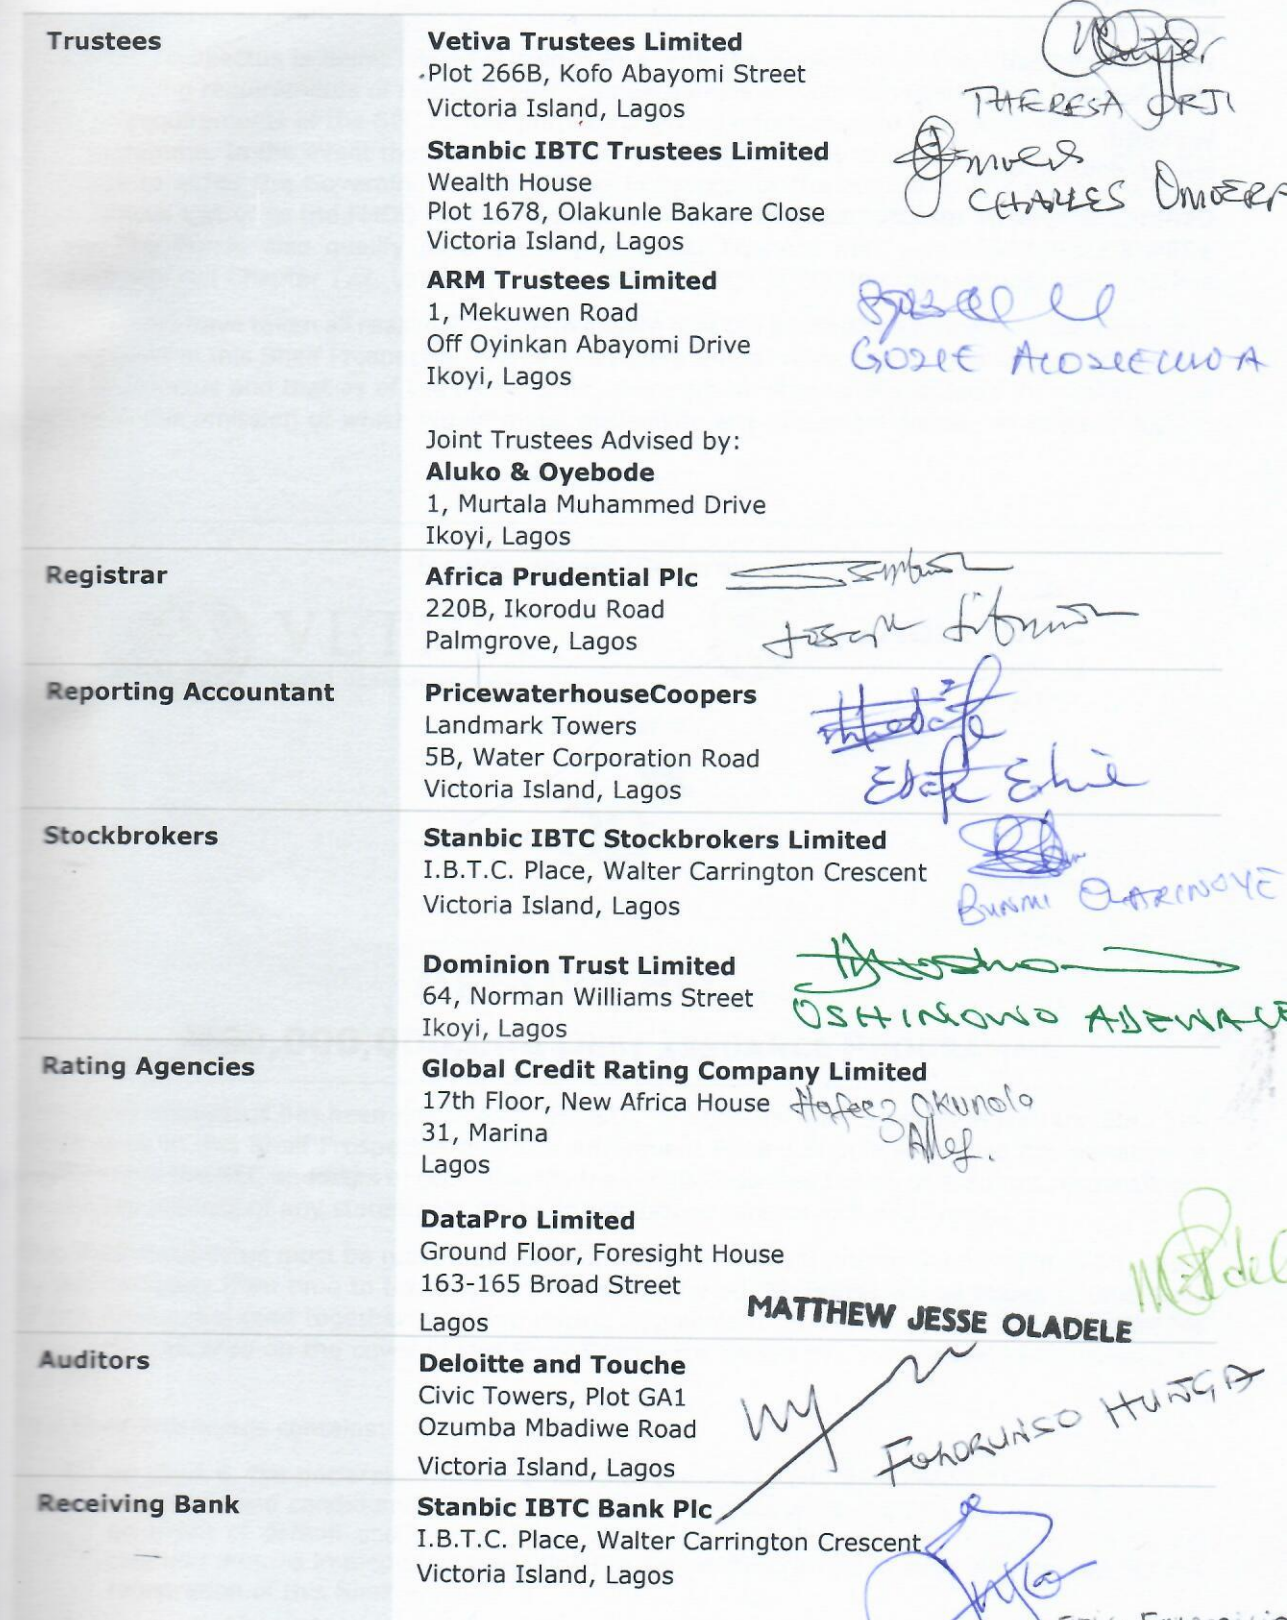 Trustees
Vetiva Trustees Limited
Plot 266B, Kofo Abayomi Street
Victoria Island, Lagos
THERESA ORJI
Stanbic IBTC Trustees Limited
Wealth House
Plot 1678, Olakunle Bakare Close
Victoria Island, Lagos
CHARLES OMOERA
ARM Trustees Limited
1, Mekuwen Road
Off Oyinkan Abayomi Drive
Ikoyi, Lagos
Joint Trustees Advised by:
Aluko & Oyebode
1, Murtala Muhammed Drive
Ikoyi, Lagos
Registrar
Africa Prudential Plc
220B, Ikorodu Road
Palmgrove, Lagos
Joseph
Reporting Accountant
PricewaterhouseCoopers
Landmark Towers
5B, Water Corporation Road
Victoria Island, Lagos
Stockbrokers
Stanbic IBTC Stockbrokers Limited
I.B.T.C. Place, Walter Carrington Crescent
Victoria Island, Lagos
BUNMI OLARINOYE
Dominion Trust Limited
64, Norman Williams Street
Ikoyi, Lagos
OSHINOWO ADEWALE
Rating Agencies
Global Credit Rating Company Limited
17th Floor, New Africa House
31, Marina
Lagos
Hafeez Okunola
DataPro Limited
Ground Floor, Foresight House
163-165 Broad Street
Lagos
MATTHEW JESSE OLADELE
Auditors
Deloitte and Touche
Civic Towers, Plot GA1
Ozumba Mbadiwe Road
Victoria Island, Lagos
HUNGA
Receiving Bank
Stanbic IBTC Bank Plc
I.B.T.C. Place, Walter Carrington Crescent
Victoria Island, Lagos